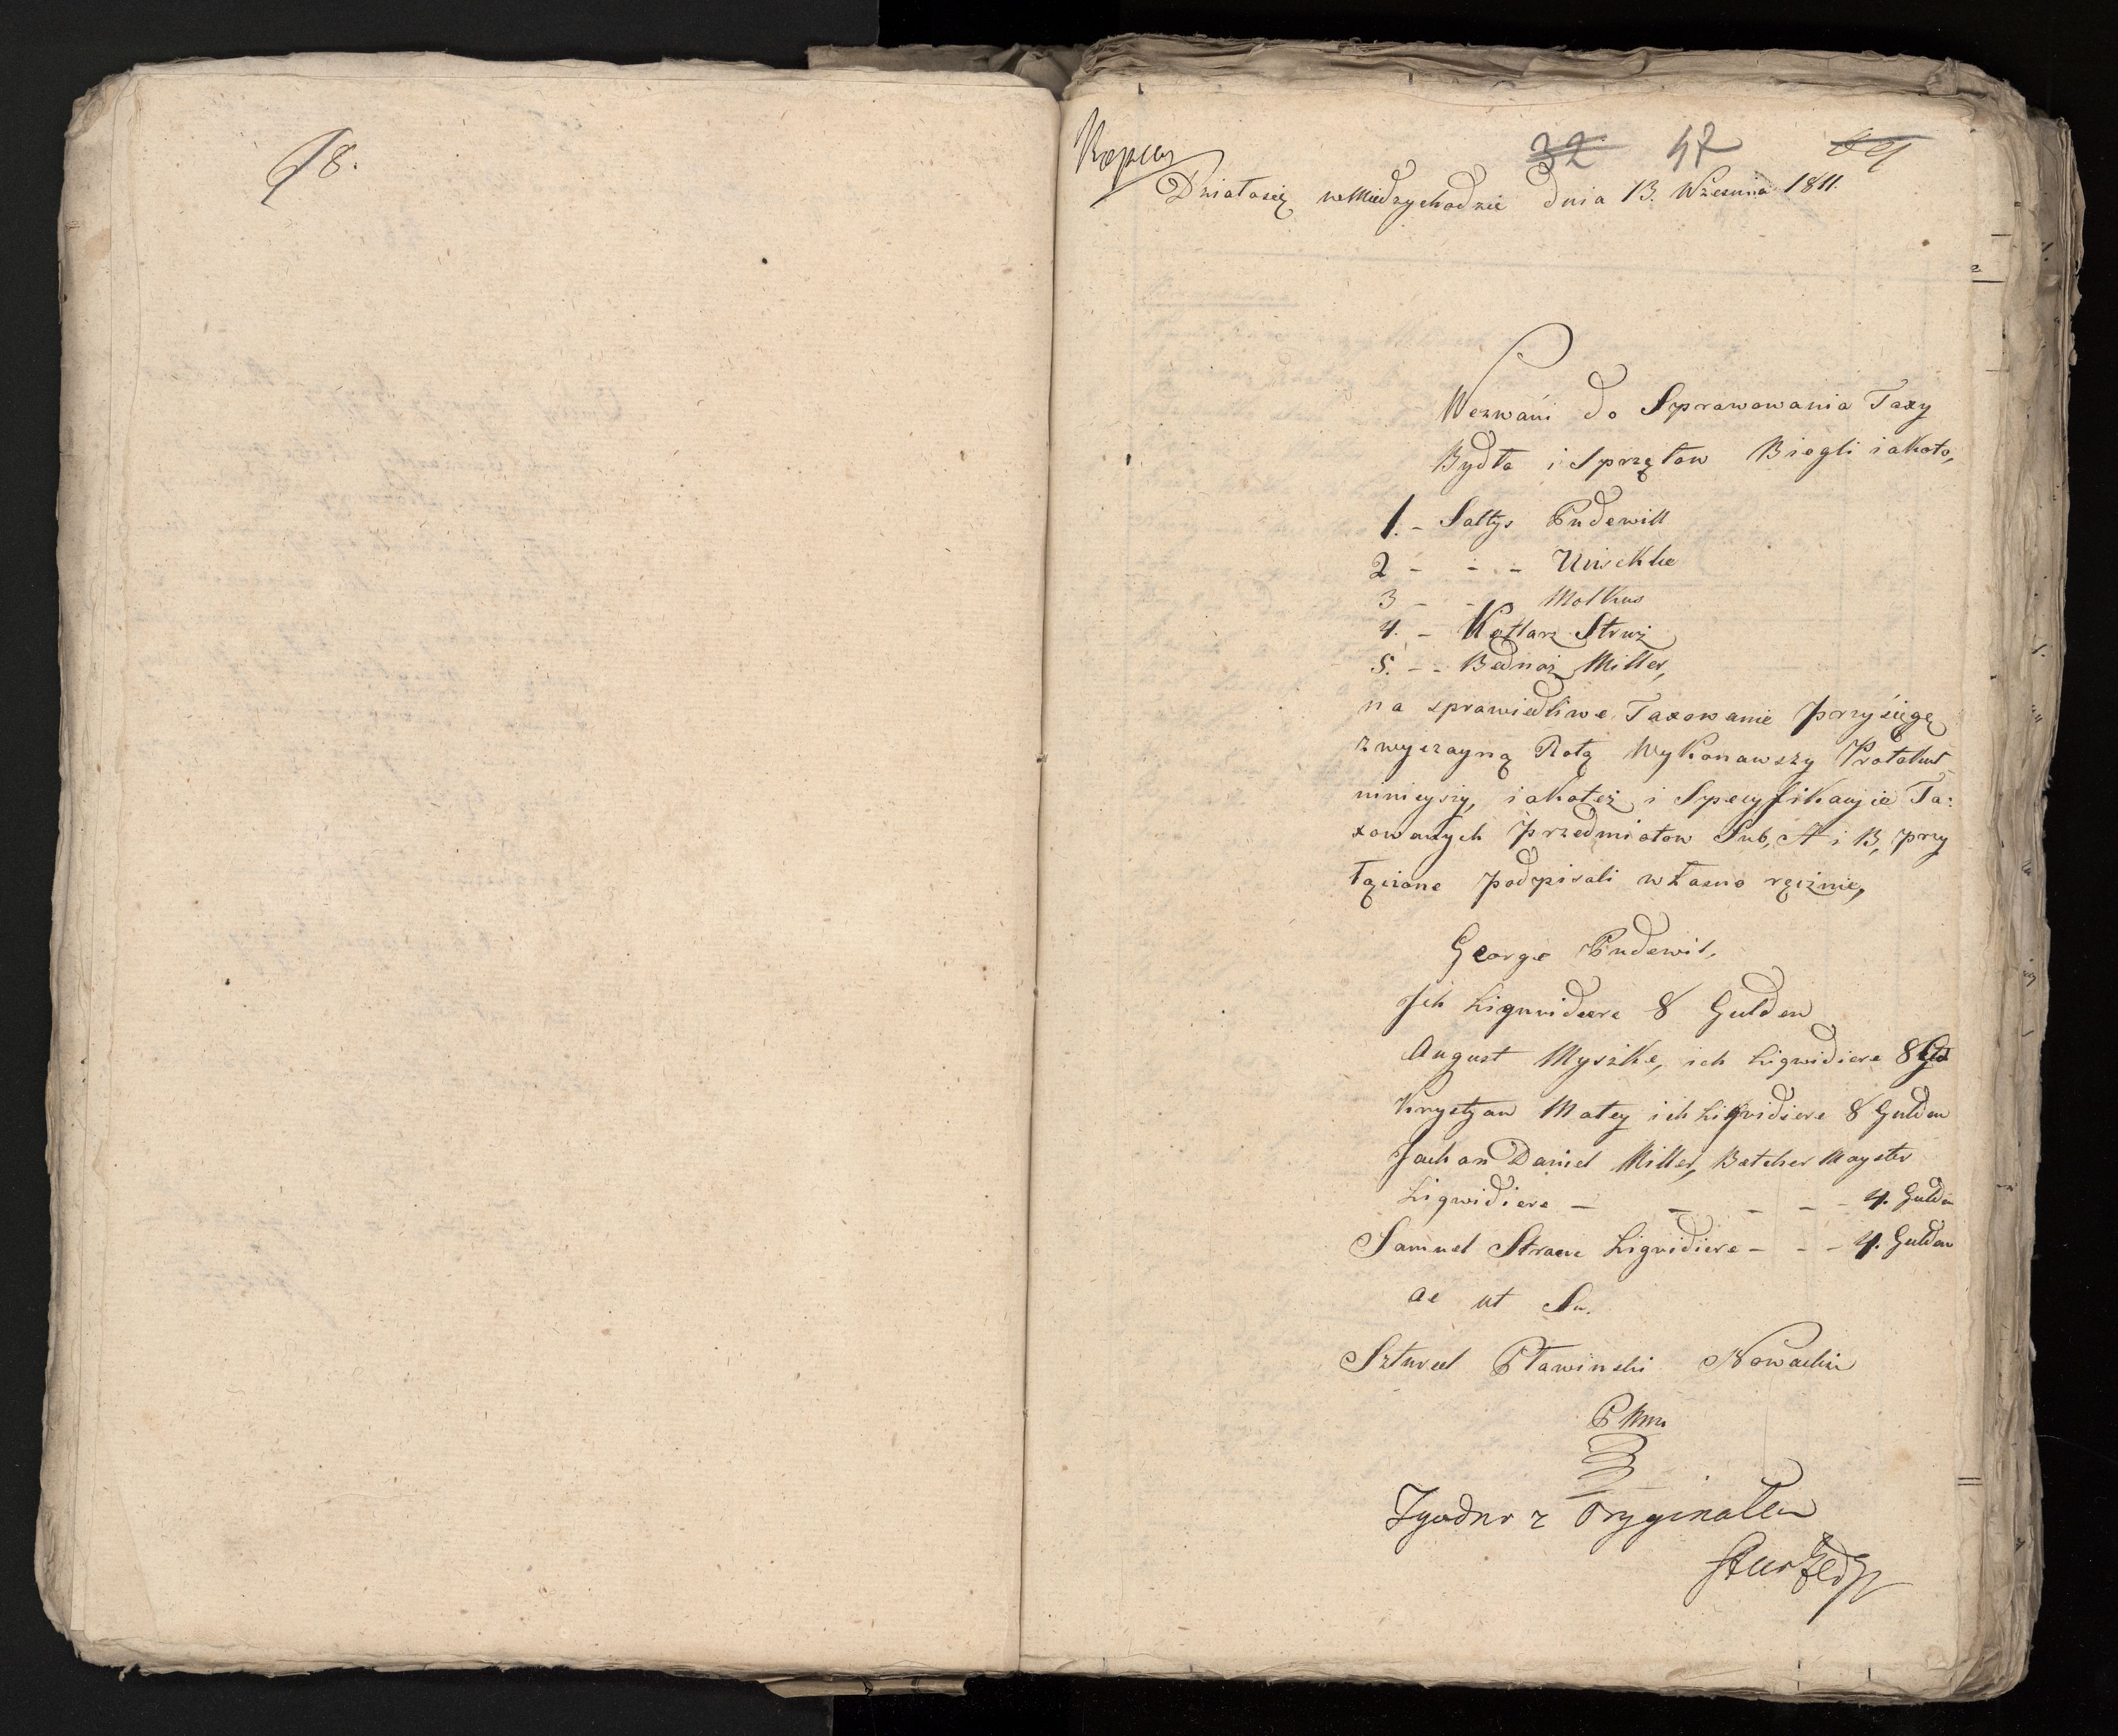 18.
Kopia
32 47
Działosię w Miedzychodzie dnia 13. Wrzesnia 1811.
Wezwani do Sprawowania Taxy
Bydła i Sprzętow Biegli iakoto,
1. - Sołtys Pudewill
2 - - -
3 - - Molkus
4. - Kotlarz Struż
5. - - Bednaż Miller,
na sprawiedliwe Taxowanie przysięgę
zwyczayną Rotą Wykonawszy Protokuł
ninieyszy, iakoteż i Specyfikacyie Ta:
xowanych przedmiotow Sub, A i B, przy
łączone podpisali własno ręcznie,
George Pudewil.
Ich Liquidiere 8 Gulden
August Myszke, ich Liqwidiere 8 Gld
Krystyan Matey ich Liqvidiere 8 Gulden
Johan Daniel Miller, Betcher Mayster
Liqwidiere - - - - - 4. Gulden
Samuel Strauc Liqwidiere - - - 4. Gulden
ac ut Su.
Szturcel Pławinski
Zgodno z Oryginałem